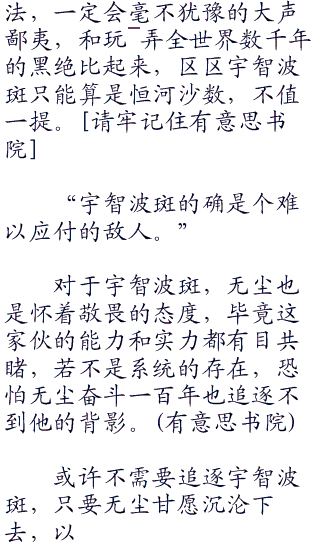 法，一定会毫不犹豫的大声
鄙夷，和玩¯弄全世界数千年
的黑绝比起来，区区宇智波
斑只能算是恒河沙数，不值
一提。[请牢记住有意思书
院]
“宇智波斑的确是个难
以应付的敌人。”
对于宇智波斑，无尘也
是怀着敬畏的态度，毕竟这
家伙的能力和实力都有目共
睹，若不是系统的存在，恐
怕无尘奋斗一百年也追逐不
到他的背影。(有意思书院)
或许不需要追逐宇智波
斑，只要无尘甘愿沉沦下
去，以